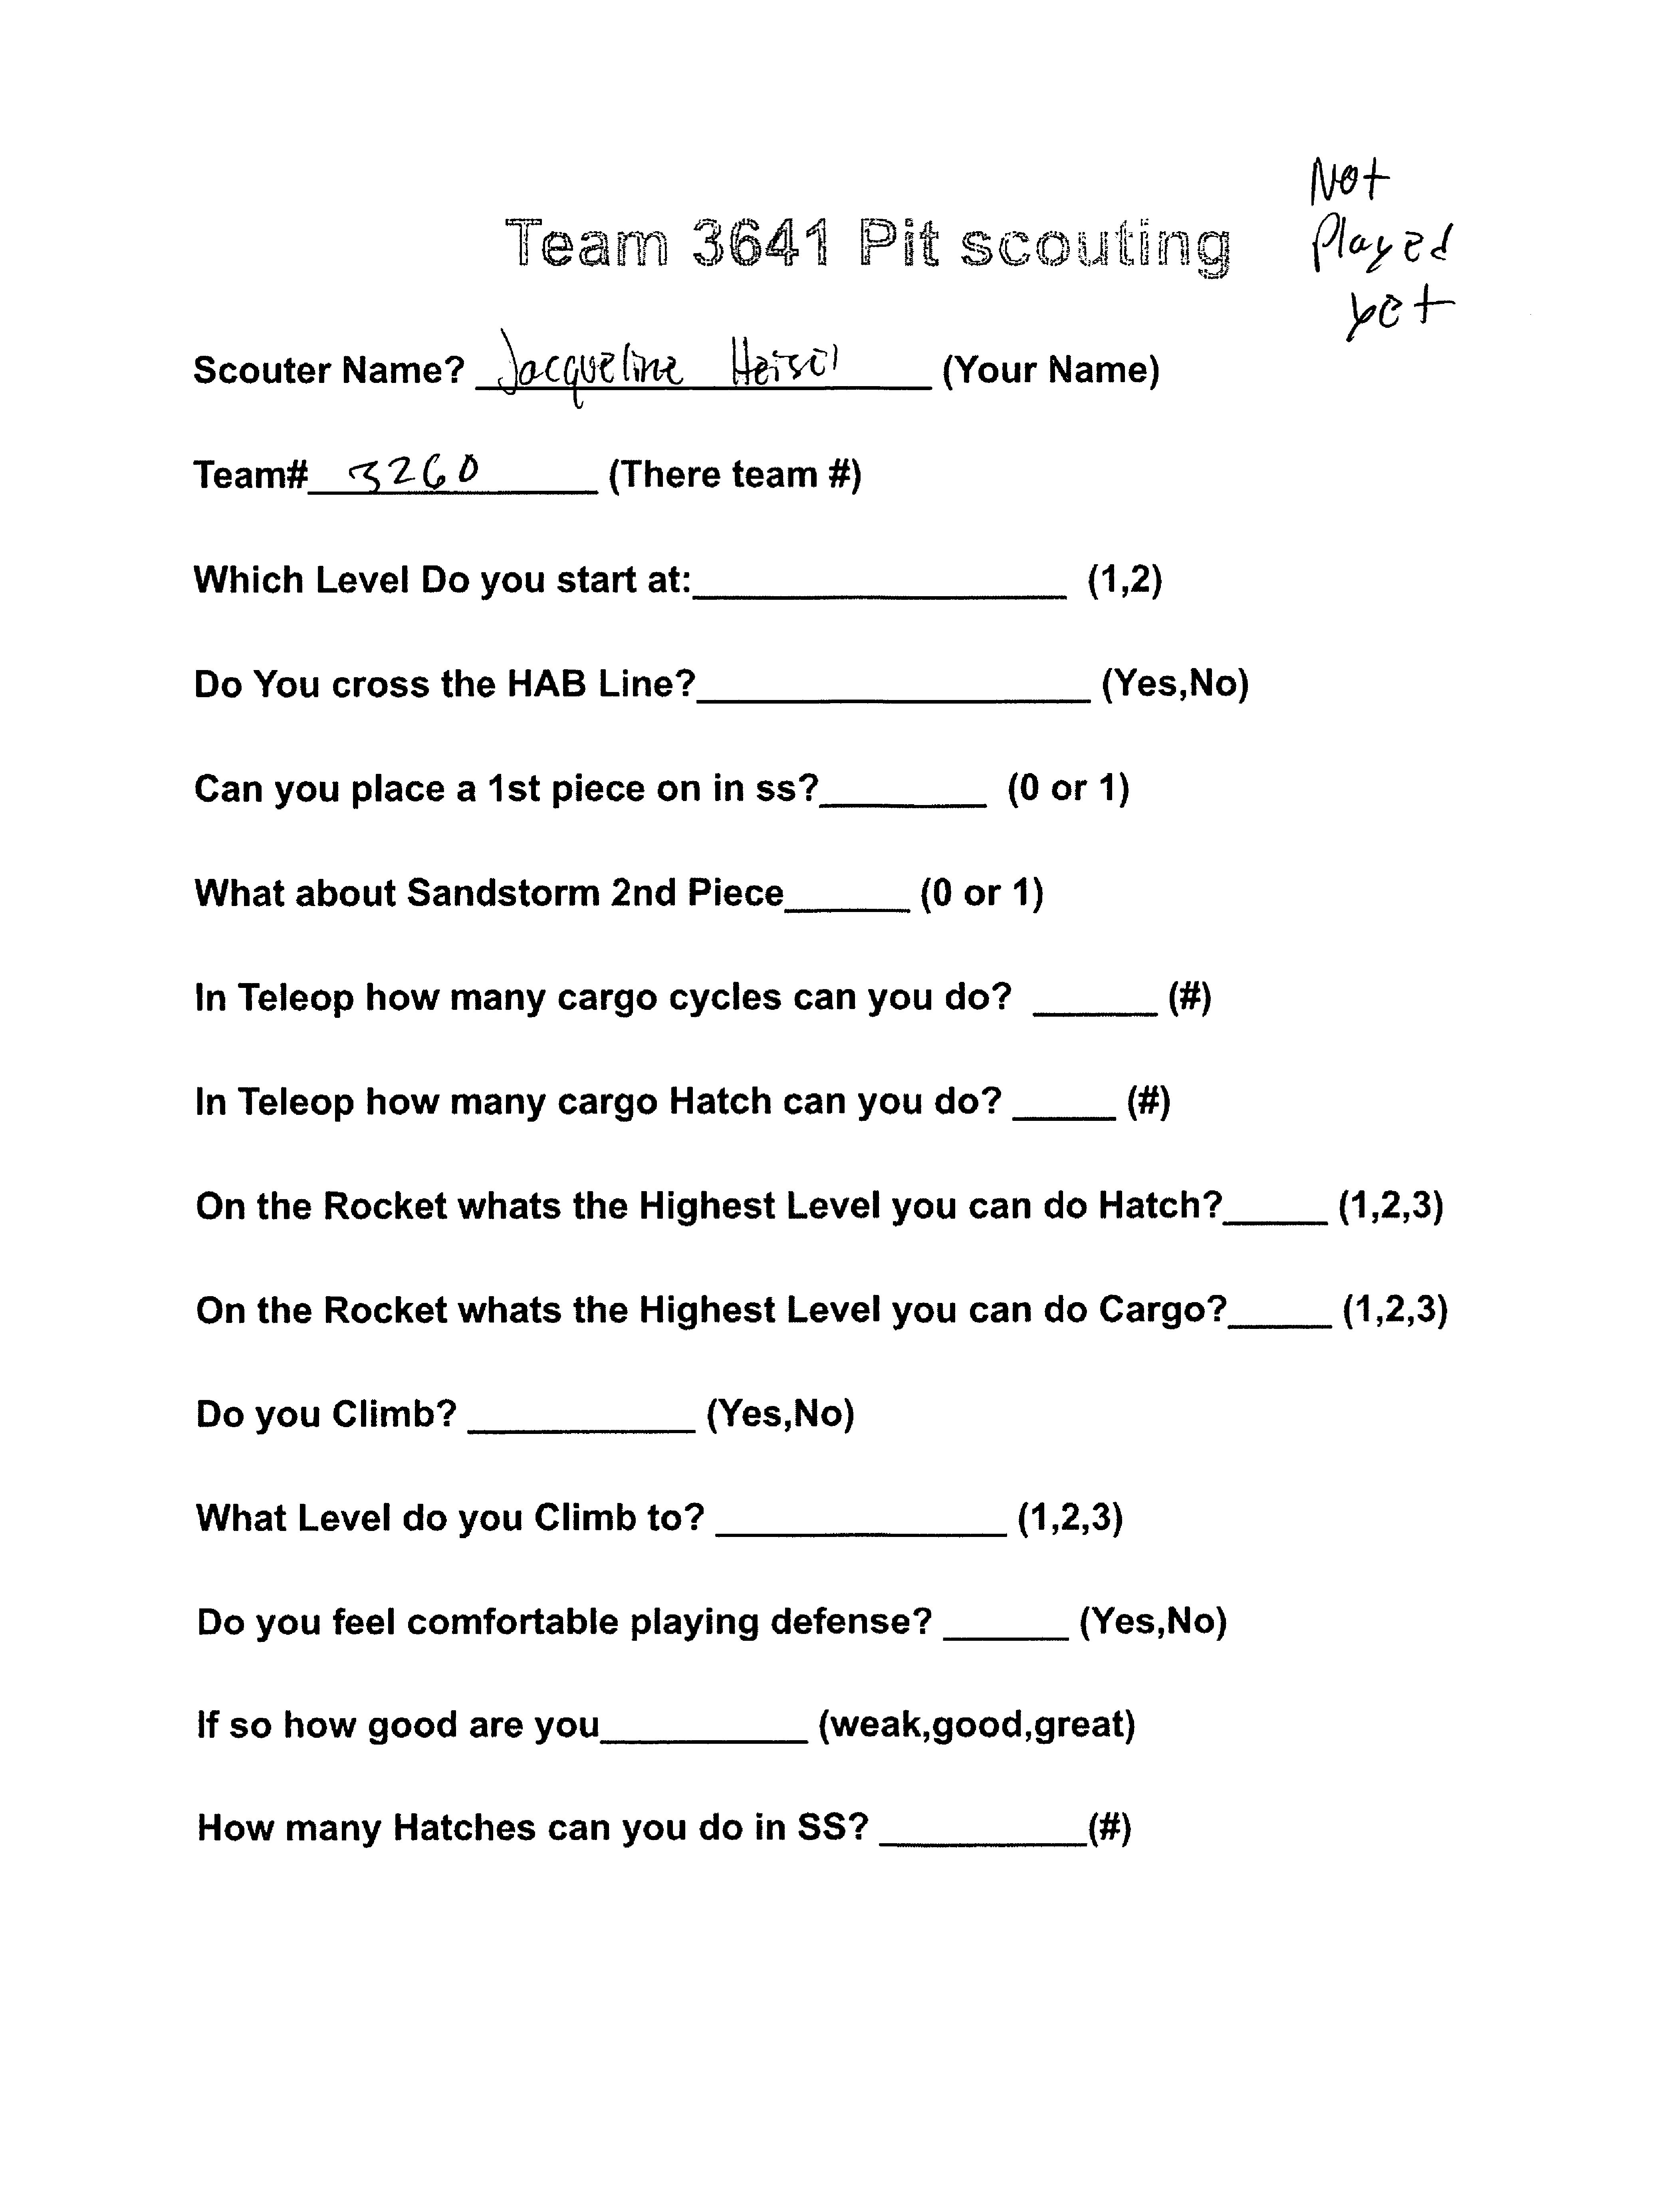 Not
Played
yet
Team 3641 Pit scouting
Scouter Name? Jacqueline (Your Name)
Team# 3260 (There team #)
Which Level Do you start at:__________________ (1,2)
Do You cross the HAB Line?___________________ (Yes,No)
Can you place a 1st piece on in ss?________ (0 or 1)
What about Sandstorm 2nd Piece______ (0 or 1)
In Teleop how many cargo cycles can you do? ______ (#)
In Teleop how many cargo Hatch can you do? _____ (#)
On the Rocket whats the Highest Level you can do Hatch?_____ (1,2,3)
On the Rocket whats the Highest Level you can do Cargo?_____ (1,2,3)
Do you Climb? ___________ (Yes,No)
What Level do you Climb to? ______________ (1,2,3)
Do you feel comfortable playing defense? ______ (Yes,No)
If so how good are you__________ (weak,good,great)
How many Hatches can you do in SS? __________(#)